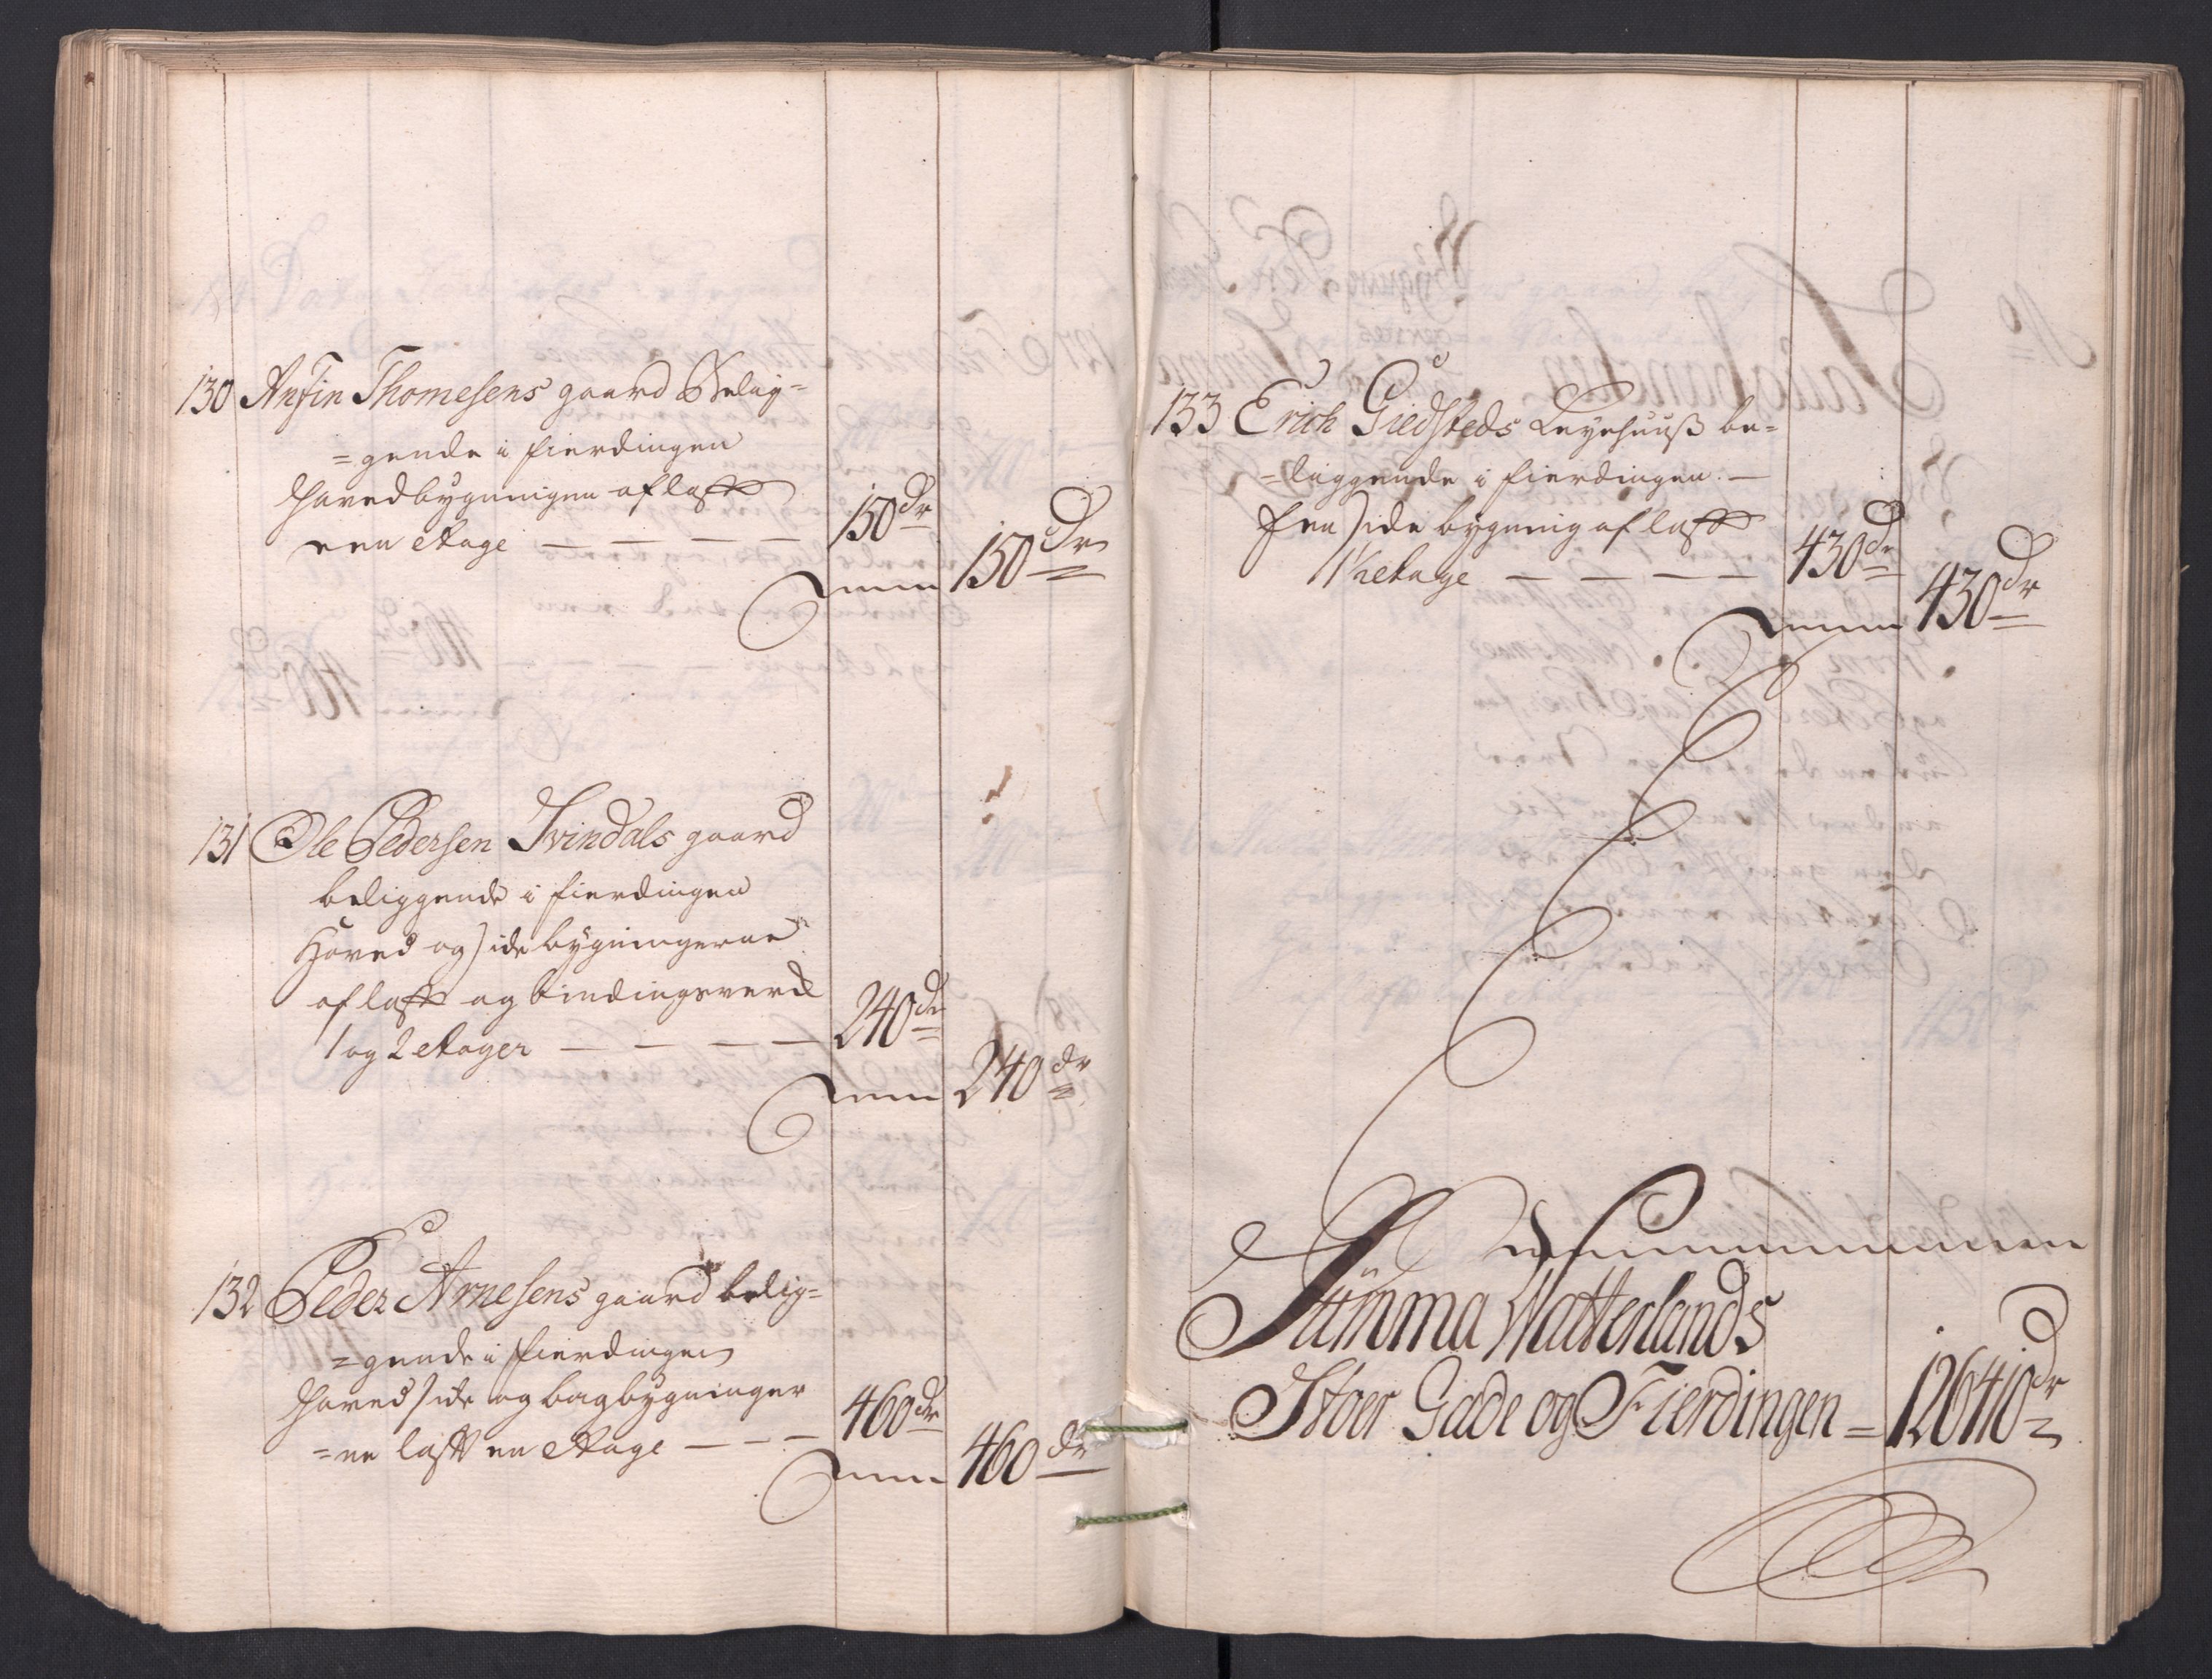 130 Anfin Thomesens gaard Belig=
=gende i fierdingen
Hovedbygningen af laft
een etage — — — — 150 dr
Summa 150 dr
131 Ole Pedersen Svindals gaard
beliggende i fierdingen
Hoved og side bygningerne
af laft og bindingsverck
1 og 2 etager — — — — 240 dr
Summa 240 dr
132 Peder Arnesens gaard belig=
=gende i fierdingen
Hoved side og bagbygninger
=ne laft en etage — — — 460 dr
Summa 460 dr
133 Erich Giedsteds Leyehuuß be=
=liggende i fierdingen —
En side bygning af laft
1½ etage — — — — 430 dr
Summa 430 dr
Summa Watterlands
Stoer Gade og Fierdingen = 126410 dr